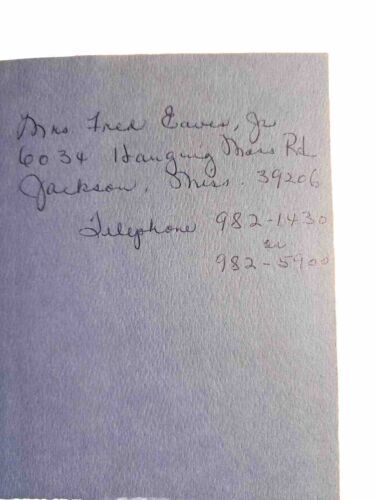 Mrs Fred Eaves, Jr
6034 Hanging Moss Rd.
Jackson, Miss. 39206
Telephone 982-1430
or
982-5900